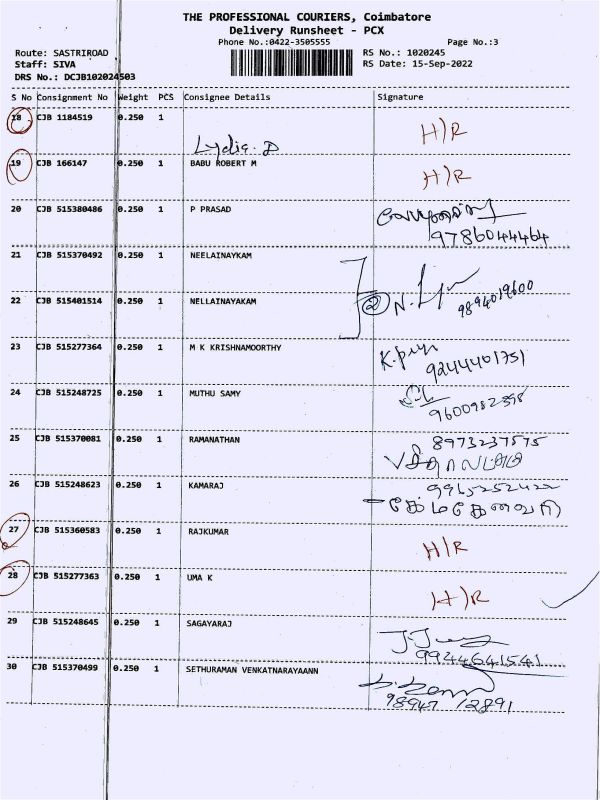 THE PROFESSIONAL COURIERS, Coimbatore
Delivery Runsheet - PCX
Phone No.:0422-3505555 Page No.:3
Route: SASTRIROAD RS No.: 1020245
Staff: SIVA RS Date: 15-Sep-2022
DRS No.: DCJB102024503
S No Consignment No Weight PCS Consignee Details Signature
18 CJB 1184519 0.250 1 H/R
Lydia. D
19 CJB 166147 0.250 1 BABU ROBERT M H/R
20 CJB 515380486 0.250 1 P PRASAD
9786044464
21 CJB 515370492 0.250 1 NEELAINAYKAM
22 CJB 515401514 0.250 1 NELLAINAYAKAM 2 9894019600
23 CJB 515277364 0.250 1 M K KRISHNAMOORTHY
9244401751
24 CJB 515248725 0.250 1 MUTHU SAMY
9600982398
25 CJB 515370081 0.250 1 RAMANATHAN 8973237575
26 CJB 515248623 0.250 1 KAMARAJ 9965252422
27 CJB 515360583 0.250 1 RAJKUMAR H/R
28 CJB 515277363 0.250 1 UMA K H/R
29 CJB 515248645 0.250 1 SAGAYARAJ
9944641541
30 CJB 515370499 0.250 1 SETHURAMAN VENKATNARAYAANN
98947 12891